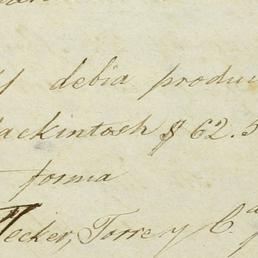 y debia produc
ackintosh $ 62.5
forma
Necker, Torre y C.ª